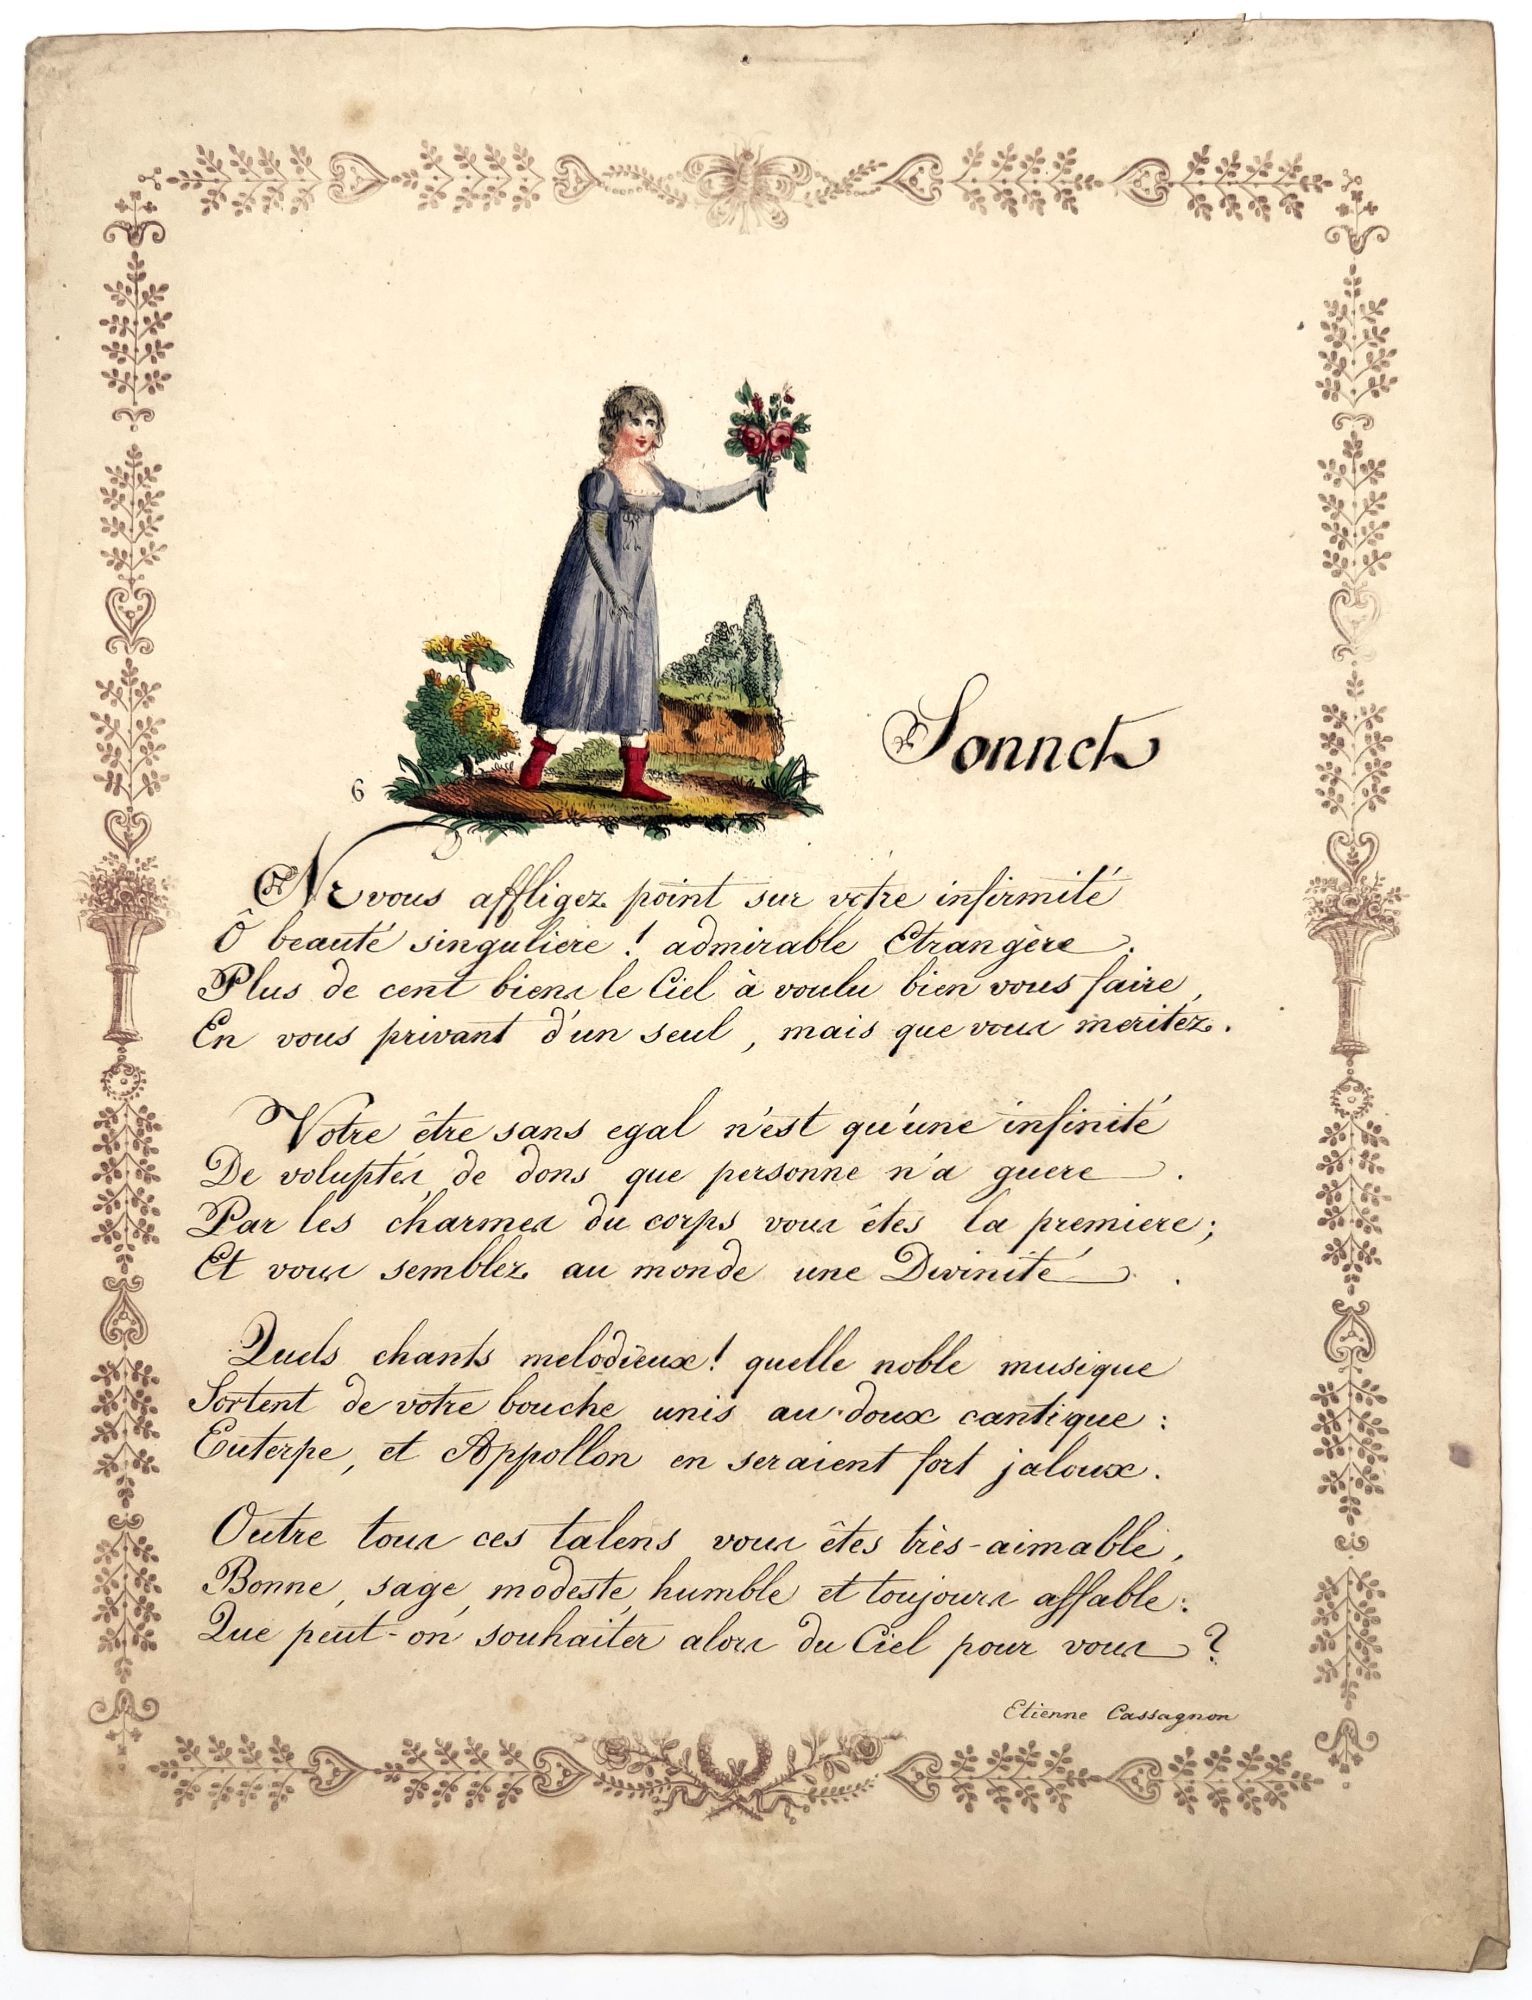 6
Sonnet
Ne vous affligez point sur votre infirmité
Ô beauté singuliere ! admirable Etrangère.
Plus de cent biens le Ciel à voulu bien vous faire,
En vous privant d'un seul, mais que vous meritez.
Votre être sans egal n'est qu'une infinité
De voluptés, de dons que personne n'a guere.
Par les charmes du corps vous êtes la premiere;
Et vous semblez au monde une Divinité.
Quels chants melodieux! quelle noble musique
Sortent de votre bouche unis au doux cantique:
Euterpe, et Appollon en seraient fort jaloux.
Outre tous ces talens vous êtes très-aimable,
Bonne, sage, modeste, humble et toujours affable:
Que peut-on souhaiter alors du Ciel pour vous?
Etienne Cassagnon